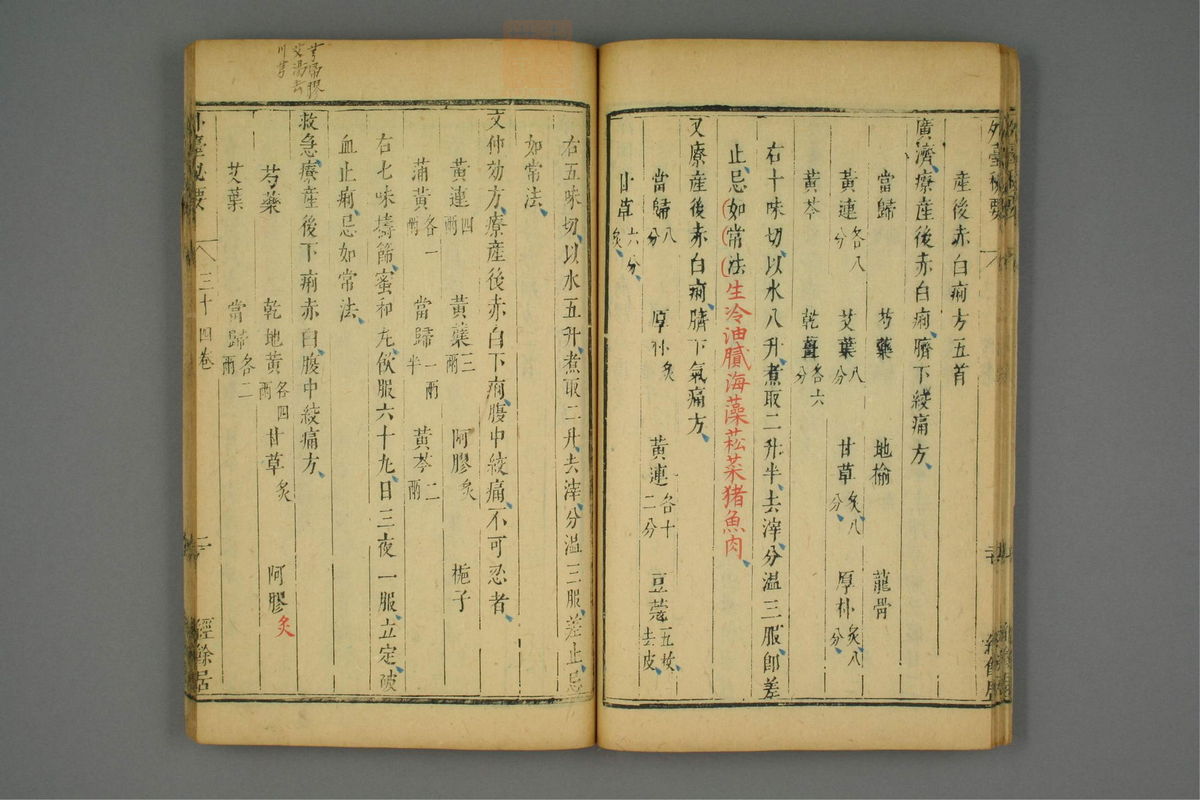 外臺秘要
産後赤白痢方五首
廣濟療産後赤白痢臍下綾痛方
當歸 芍藥 地榆 龍骨
黃連各八分 艾葉八分 甘草炙八分 厚朴炙八分
黃芩 乾薑各六分
右十味切以水八升煮取二升半去滓分温三服卽差
止忌如常法生冷油膩海藻菘菜猪魚肉
又療産後赤白痢臍下氣痛方
當歸八分 厚朴炙 黃連各十二分 豆蔻五枚去皮
甘草六分炙
右五味切以水五升煮取二升去滓分温三服差止忌
如常法
文仲効方療産後赤白下痢腹中絞痛不可忍者
黃連四兩 黃蘗三兩 阿膠炙 梔子
蒲黃各一兩 當歸一兩半 黃芩二兩
右七味擣篩蜜和丸飲服六十丸日三夜一服立定破
血止痢忌如常法
救急療産後下痢赤白腹中絞痛方
芍藥 乾地黃各四兩 甘草炙 阿膠炙
艾葉 當歸各二兩
外臺秘要
三十四卷
經餘居
芎歸膠
艾湯去
川芎